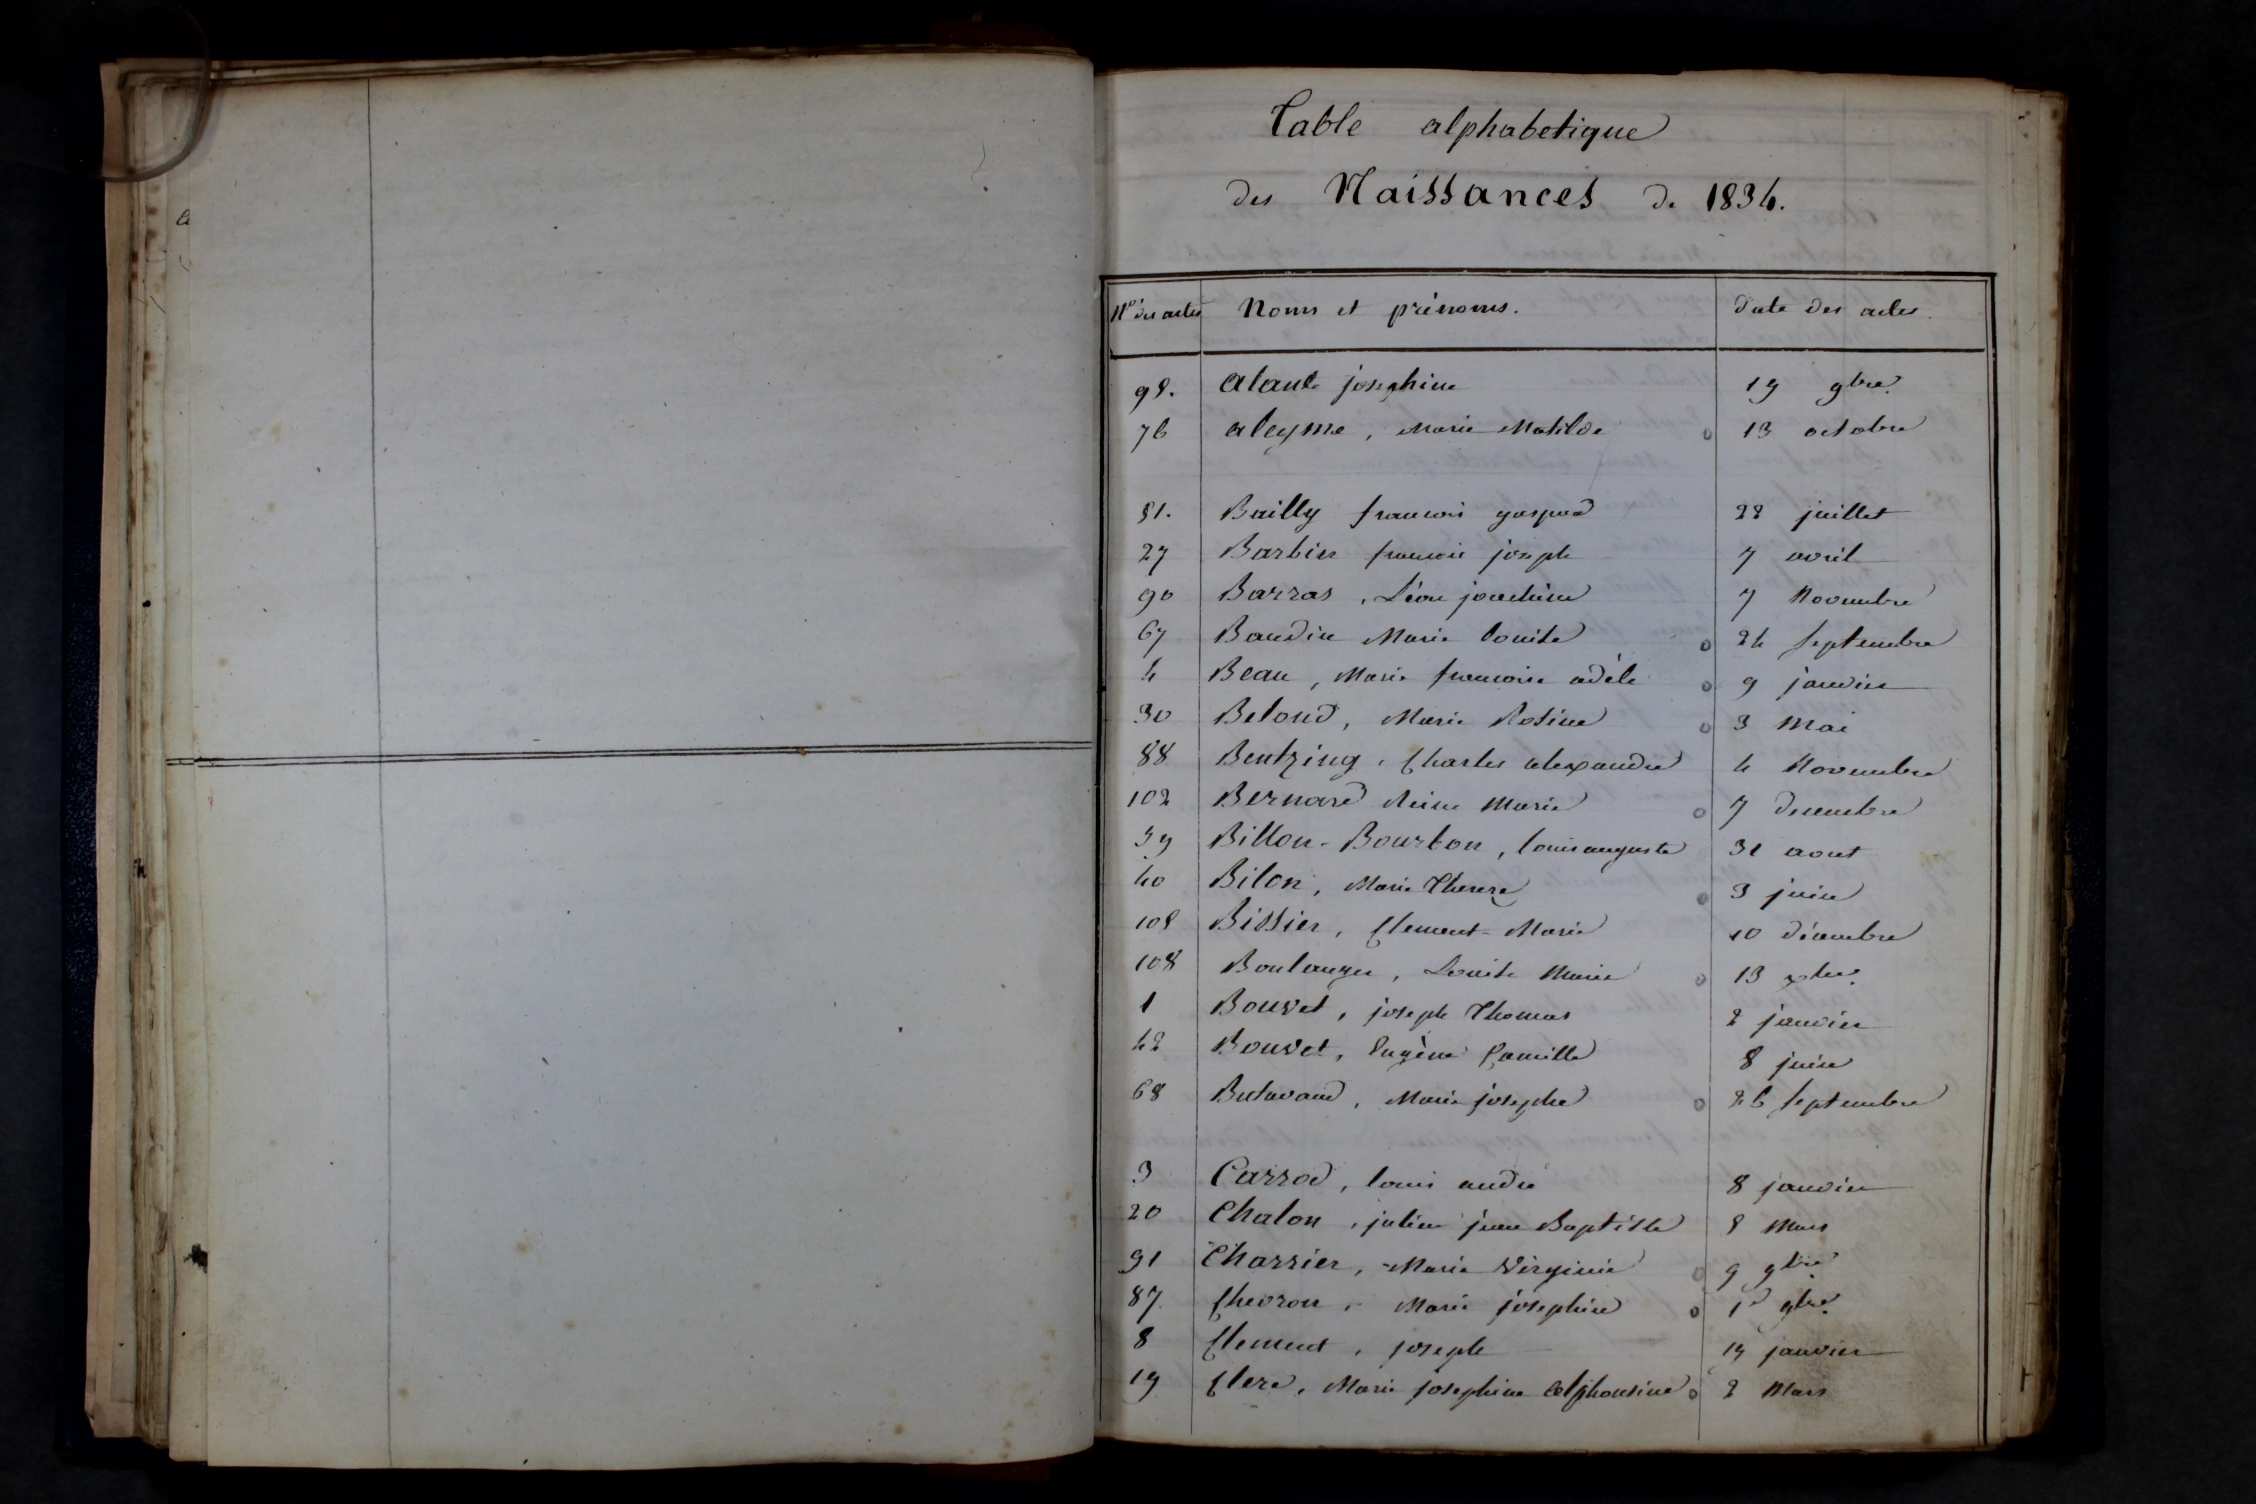 Table alphabetique
des Naissances de 1834.
N° des actes Noms et prénoms. date des actes.
98. alante josephine 19 9bre.
76 aleyme, Marie Matilde 13 octobre
51. Bailly francois gaspard 28 juillet
27 Barbier francois joseph 7 avril
90 Barras, Léon joachim 7 Novembre
67 Baudin Marie Louise 24 septembre
4 Beau, Marie francoise adèle 9 janvier
30 Beloud, Marie Rosine 3 Mai
88 Bentzing, Charles alexandre 4 Novembre
102 Bernard Reine Marie 7 decembre
59 Billon-Bourbon, louis auguste 31 aout
40 Bilon, Marie Therese 3 juin
105 Bissier, Clement-Marie 10 décembre
108 Boulanger, Louise Marie 13 xbre.
1 Bouvet, joseph Thomas 2 janvier
42 Bouvet, Eugène Camille 8 juin
68 Butavand, Marie josephe 26 septembre
3 Carrod, louis andré 8 janvier
20 Chalon, julien jean Baptiste 8 Mars
91 Charrier, Marie Virginie 9 9bre
87 Chevron, Marie josephine 1er 9bre.
8 Clement, joseph 14 janvier
19 Clere, Marie josephine alphonsine 2 Mars